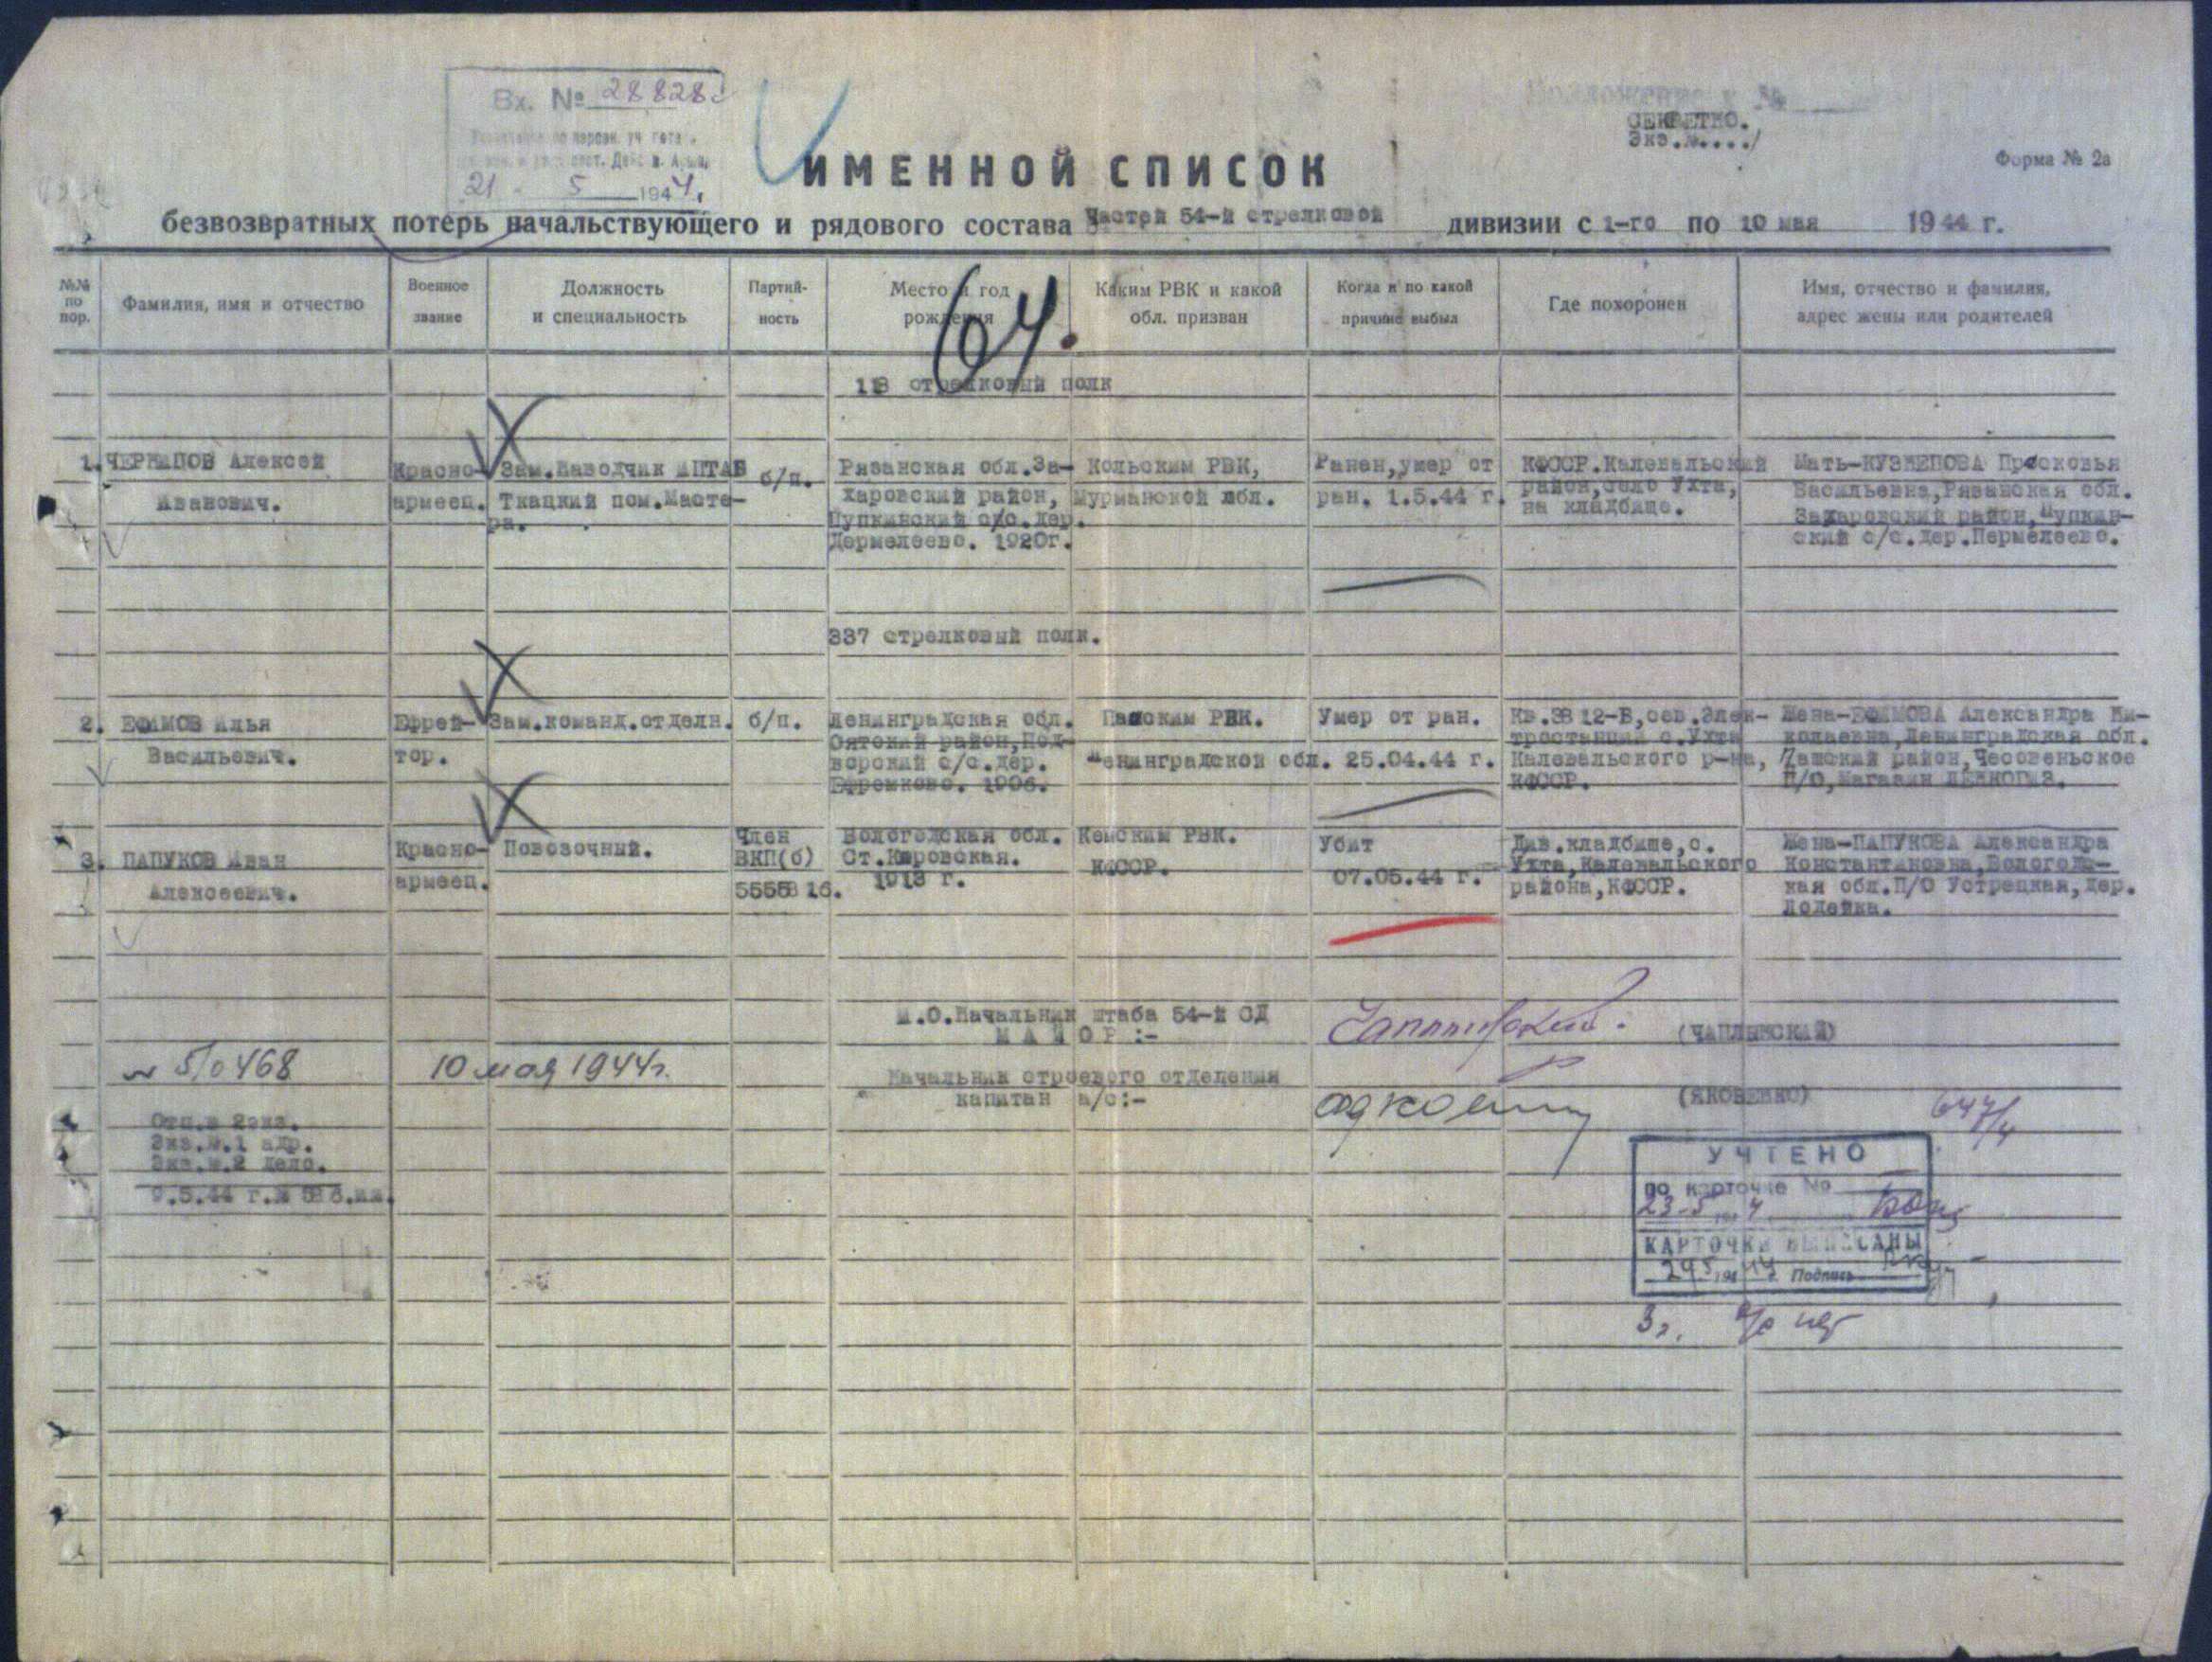 Вх. № 28828с
21 - 5 1944.
Приложение к №
СЕКРЕТНО.
Экз.№..../
Форма № 2а
ИМЕННОЙ СПИСОК
безвозвратных потерь начальствующего и рядового состава Частей 54-й стрелковой дивизии с 1-го по 10 мая 1944 г.
№№ по пор.
Фамилия, имя и отчество
Военное звание
Должность и специальность
Партий-ность
Место и год рождения
Каким РВК и какой обл. призван
Когда и по какой причине выбыл
Где похоронен
Имя, отчество и фамилия, адрес жены или родителей
64.
118 стрелковый полк
1. Алексей
Иванович.
Красно-
армеец.
Зам.наводчик
Ткацкий пом.масте-
ра.
б/п.
Рязанская обл.За-
харовский район,
с/с.дер.
1920г.
Кольским РВК,
Мурманской обл.
Ранен,умер от
ран. 1.5.44 г.
КФССР.Калевальский
район,село Ухта,
на кладбище.
Мать-КУЗНЕЦОВА Просковья
Васильевна,Рязанская обл.
Захаровский район,
ский с/с.дер.Пермелеево.
337 стрелковый полк.
2. ЕФИМОВ Илья
Васильевич.
Ефрей-
тор.
Зам.команд.отделн.
б/п.
Ленинградская обл.
Оятский район,Под-
ворский с/с.дер.
Ефремково. 1906.
Пашским РВК.
Ленинградской обл.
Умер от ран.
25.04.44 г.
Кв.3812-В,сев.Элек-
тростанции с.Ухта
Калевальского р-на,
КФССР.
Жена-ЕФИМОВА Александра Ни-
колаевна,Ленинградская обл.
Пашский район,Часовеньское
П/О,магазин
3. ПАПУКОВ Иван
Алексеевич.
Красно-
армеец.
Повозочный.
Член
ВКП(б)
5555816.
Вологодская обл.
Ст.Кировская.
1913 г.
Кемским РВК.
КФССР.
Убит
07.05.44 г.
Див.кладбище,с.
Ухта,Калевальского
района,КФССР.
Жена-ПАПУКОВА Александра
Константиновна,Вологодс-
кая обл.П/О Устрецкая,дер.
Лодейка.
И.О.Начальник штаба 54-й СД
МАЙОР :-
(ЧАПЛИЕВСКИЙ)
№ 5/0468
10 мая 1944г.
Начальник строевого отделения
капитан а/с:-
(ЯКОВЕНКО)
647/4
Отп.в 2экз.
Экз.№.1 адр.
Экз.№.2 дело.
9.5.44 г.
УЧТЕНО
по карточке №
23-5 194
КАРТОЧКИ ВЫПИСАНЫ
24 5 1944 Подпись